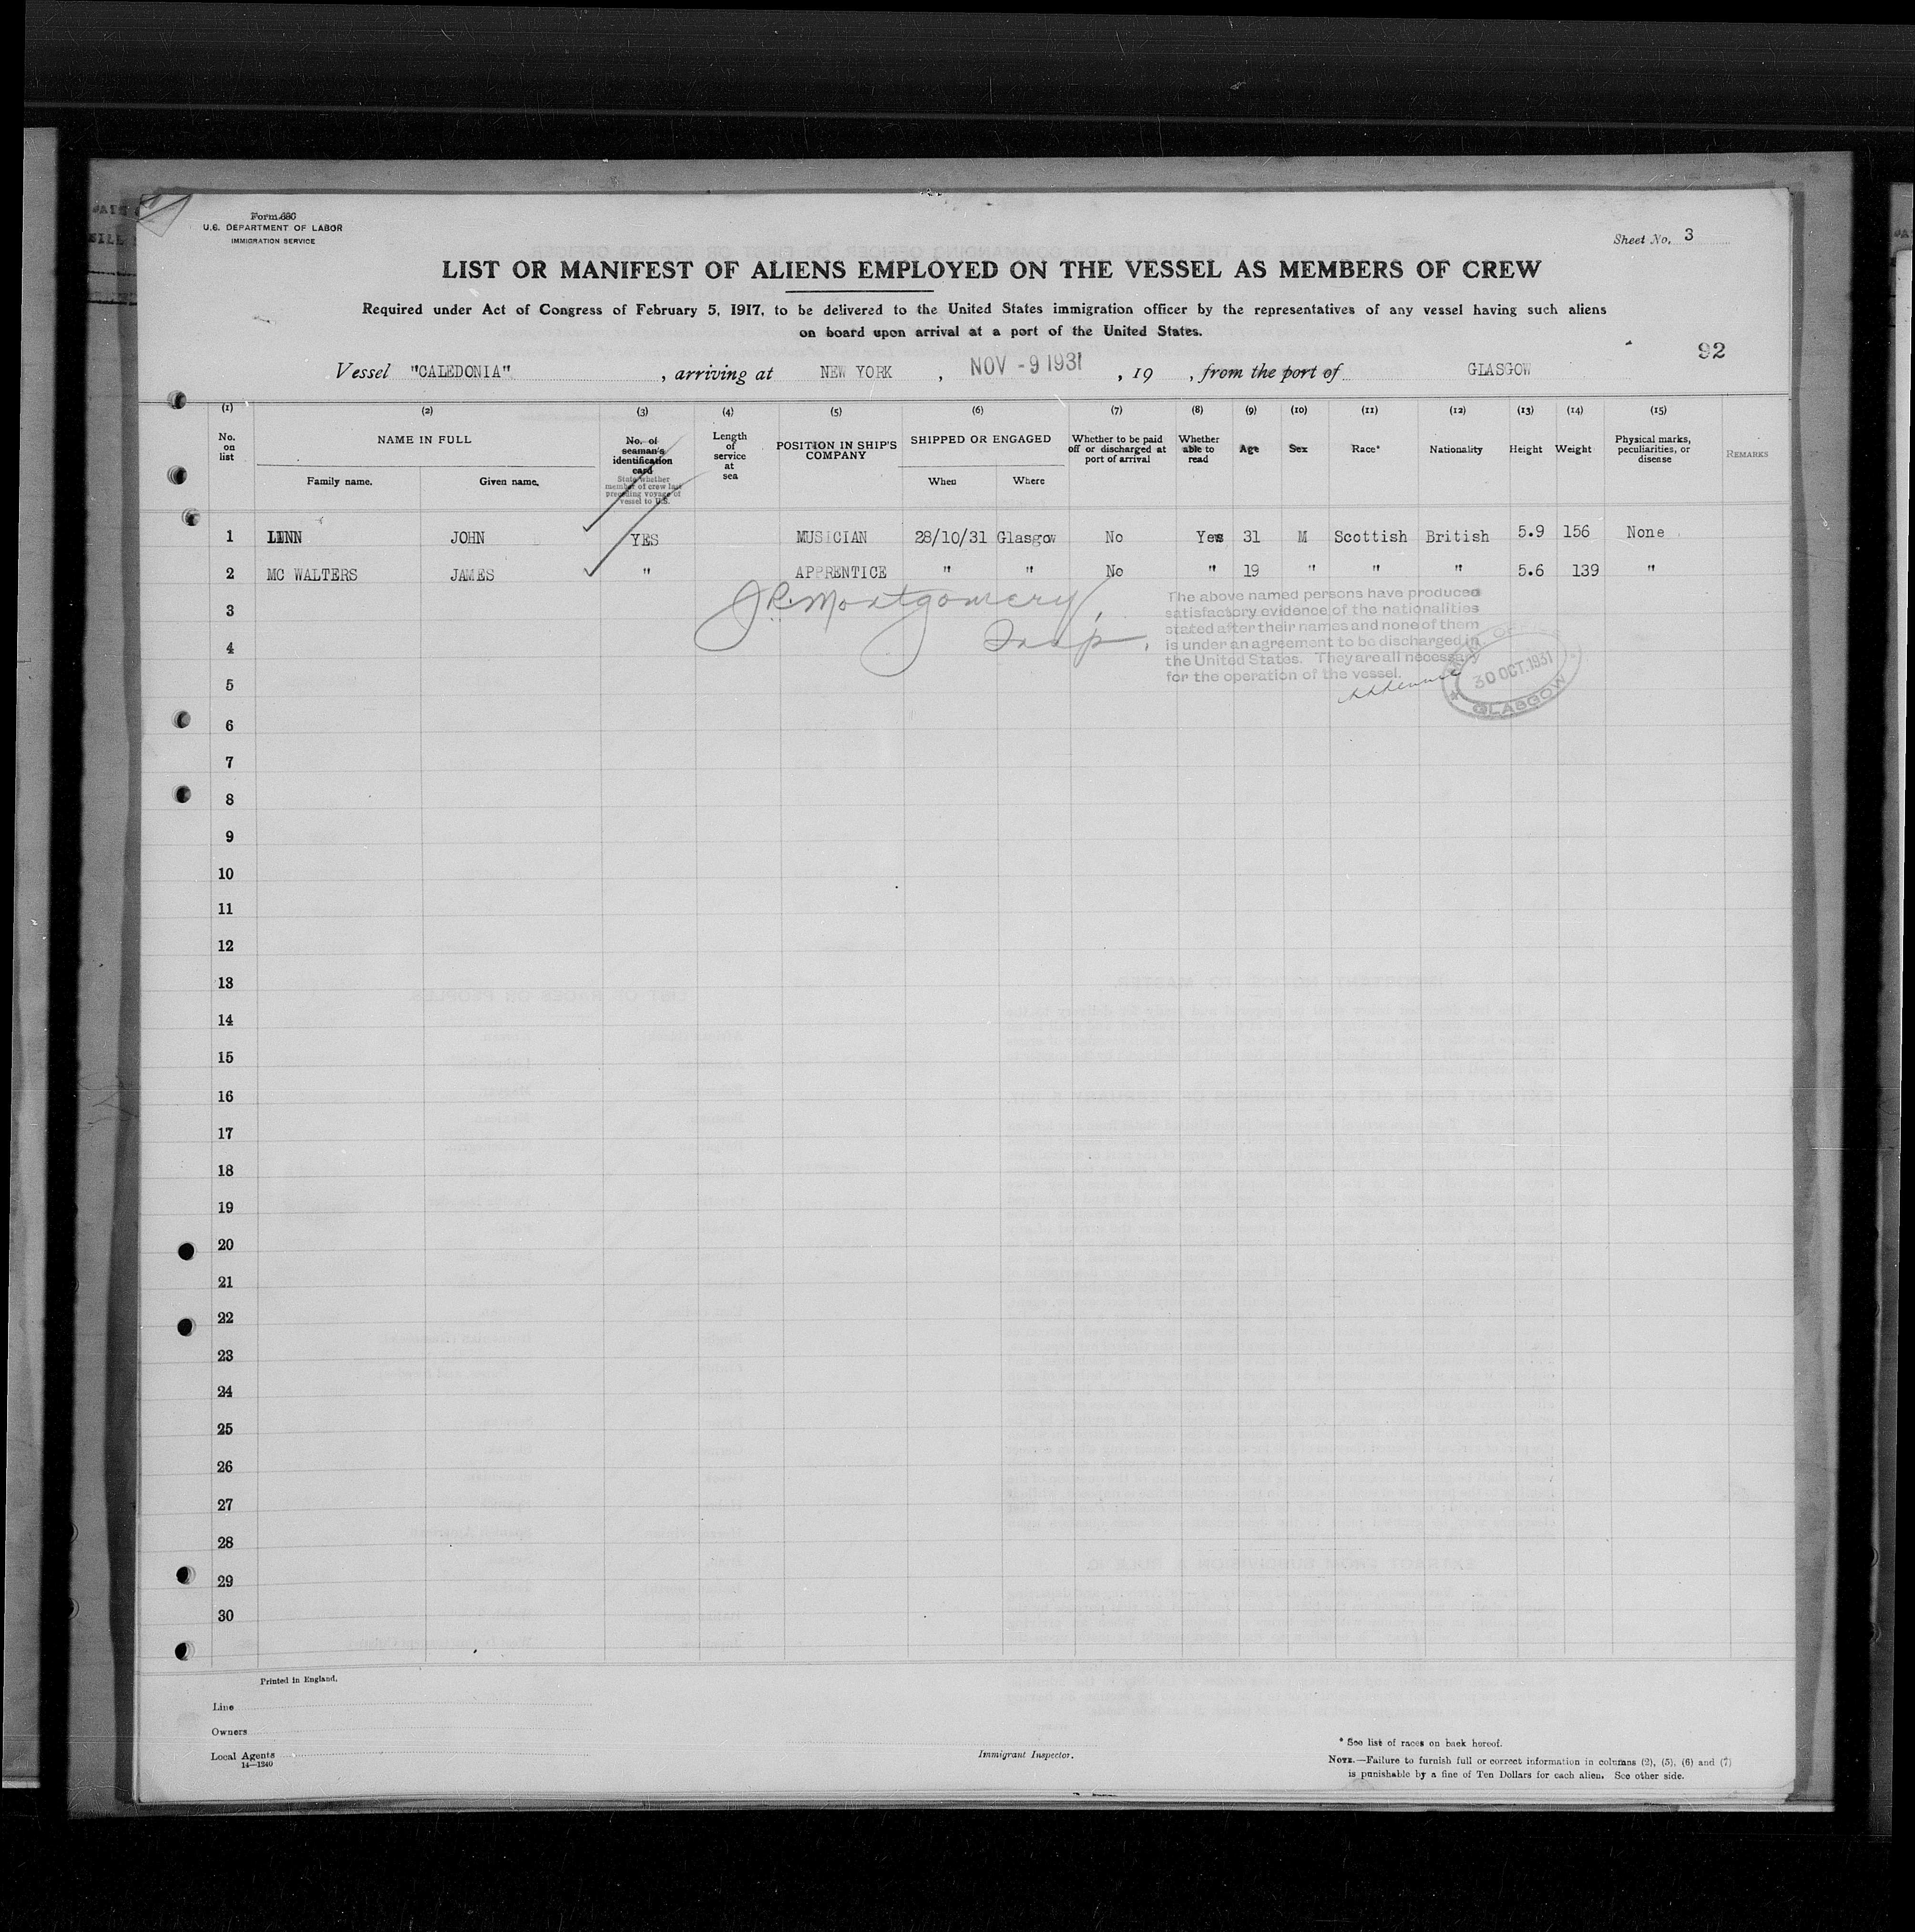 Form 680
U.S. DEPARTMENT OF LABOR
IMMIGRATION SERVICE
Sheet No. 3
LIST OR MANIFEST OF ALIENS EMPLOYED ON THE VESSEL AS MEMBERS OF CREW
Required under Act of Congress of February 5, 1917, to be delivered to the United States immigration officer by the representatives of any vessel having such aliens
on board upon arrival at a port of the United States.
92
Vessel "CALEDONIA" , arriving at NEW YORK , NOV -9 1931 , 19 , from the port of GLASGOW
(1) (2) (3) (4) (5) (6) (7) (8) (9) (10) (11) (12) (13) (14) (15)
No. on list
NAME IN FULL
Family name. Given name.
No. of seaman's identification card
State whether member of crew last preceding voyage of vessel to U.S.
Length of service at sea
POSITION IN SHIP'S COMPANY
SHIPPED OR ENGAGED
When Where
Whether to be paid off or discharged at port of arrival
Whether able to read
Age
Sex
Race*
Nationality
Height
Weight
Physical marks, peculiarities, or disease
REMARKS
1 LINN JOHN YES MUSICIAN 28/10/31 Glasgow No Yes 31 M Scottish British 5.9 156 None
2 MC WALTERS JAMES " APPRENTICE " " No " 19 " " " 5.6 139 "
J.R. Montgomery,
Insp.
The above named persons have produced
satisfactory evidence of the nationalities
stated after their names and none of them
is under an agreement to be discharged in
the United States. They are all necessary
for the operation of the vessel.
30 OCT. 1931
GLASGOW
3
4
5
6
7
8
9
10
11
12
13
14
15
16
17
18
19
20
21
22
23
24
25
26
27
28
29
30
Printed in England.
Line
Owners
Local Agents
14—1240
Immigrant Inspector.
* See list of races on back hereof.
NOTE.—Failure to furnish full or correct information in columns (2), (5), (6) and (7)
is punishable by a fine of Ten Dollars for each alien. See other side.